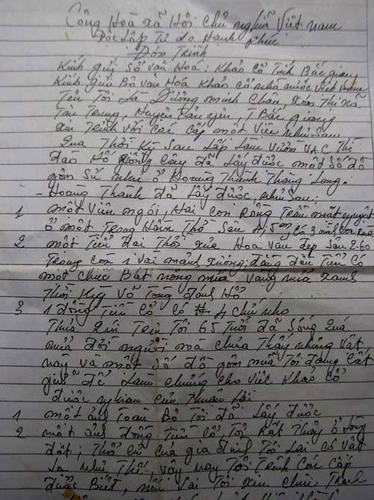 Cộng Hoà xã Hội chủ nghĩa Việt nam
Độc Lập Tự Do Hạnh phúc
Đơn Trình
Kính gửi Sở văn Hoá: Khảo Cổ Tỉnh Bắc giang
Kính gửi Bộ văn Hoá Khảo cổ nhà nước Việt nam
Tên Tôi La Dương minh Chân, xóm Thị xã
Tân Trung, Huyện Tân yên, T Bắc giang
xin Trình với Các Cấp một việc như sau
Qua Thời Kỳ San Lấp Làm vườn VAC Thì
đào Hố Trồng Cây đã Lấy được một số đồ
gốm sứ như ở Hoàng Thành Thăng Long.
- Hoàng Thành đã Lấy được như sau:
1 một viên ngói, Hai con Rồng Trầu mặt nguyệt
ở một Trong Hầm Thổ sâu
2 một Tiền đại Thổ xưa Hoa văn đẹp sâu 2.60
Trong con 1 vại mảnh
một chiếc Bát nông màu vàng màu xanh
Thời Kỳ
3 1 đồng Tiền cổ có 4 chữ nho
Thưa xin Tên Tôi 65 Tuổi đã Sống Qua
nửa đời người mà chưa Thấy những vật
này và một số đồ gốm nữa Tôi đang Cất
giữ để Làm chứng cho việc Khảo cổ
được nghiên cứu Thuận Lợi
1 một ảnh Toàn Bộ Tôi đã Lấy được
2 một ảnh đồng Tiền cổ, Tôi Rất Thấy ở Lòng
đất; Thổ cư của gia đình Tôi Lại có vật
Lạ như Thế, vậy nay Tôi Trình Các cấp
được Biết, nếu Tôi xin chịu Trách